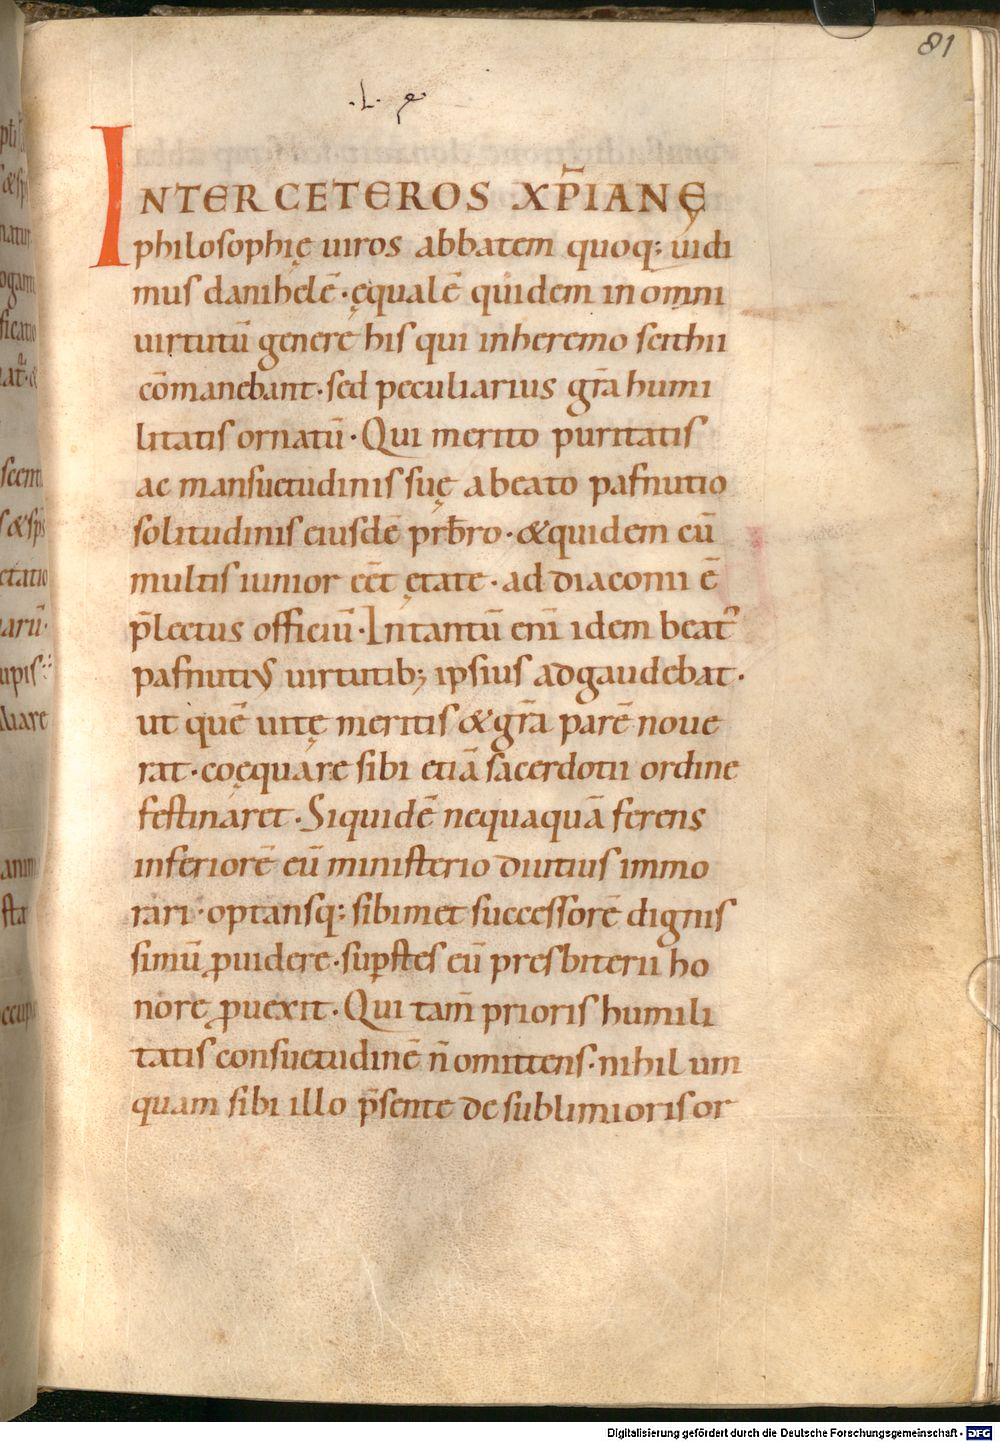 81
·L· e·
INTER CETEROS XP̅IANĘ
philosophię uiros abbatem quoq; uidi
mus danihelē · ęqualē quidem in omni
uirtutū genere his qui inheremo scithii
cōmanebant · sed peculiarius gr̄a humi
litatis ornatū · Qui merito puritatis
ac mansuetudinis suę abeato pafnutio
solitudinis eiusdē pr̄b̄ro · &quidem cū
multis iunior eēt ętate · ad diaconii ē
p̄lectus officiū · Intantū enī idem beat᾽
pafnutius uirtutib; ipsius adgaudebat ·
ut quē uitę meritis &gr̄a parē noue
rat · coęquare sibi etiā sacerdotii ordine
festinaret · Siquidē nequaquā ferens
inferiorē eū ministerio diutius immo
rari · optansq; sibimet successorē dignis
simū ꝓuidere · suꝑstes eū presbiterii ho
nore ꝓuexit · Qui tam̄ prioris humili
tatis consuetudinē n̄ omittens · nihil um
quam sibi illo p̄sente de sublimioris or
Digitalisierung gefördert durch die Deutsche Forschungsgemeinschaft - DFG